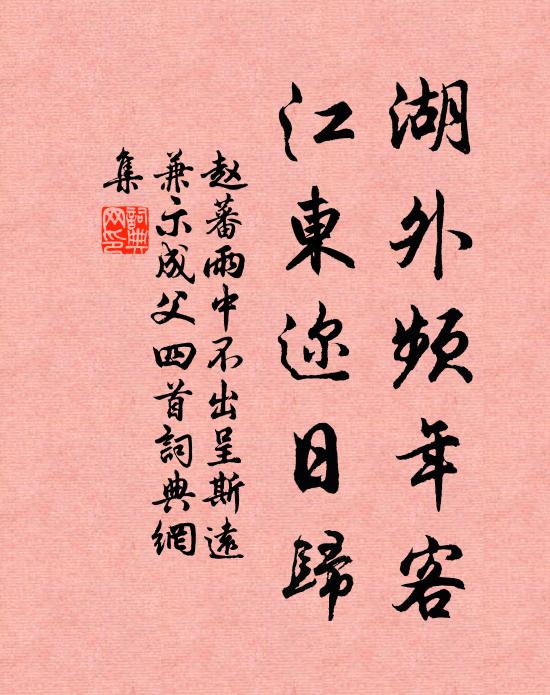 湖外頻年客
江東迩日歸
赵蕃雨中不出呈斯遠
兼示成父四首詞典網
集
詞典网印